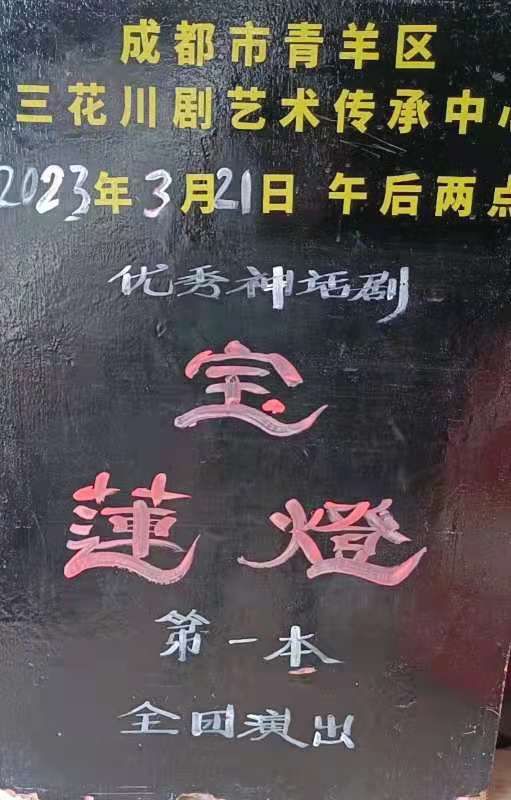 成都市青羊区
三花川剧艺术传承中心
2023年3月21日 午后两点
优秀神话剧
宝
莲燈
第一本
全团演出